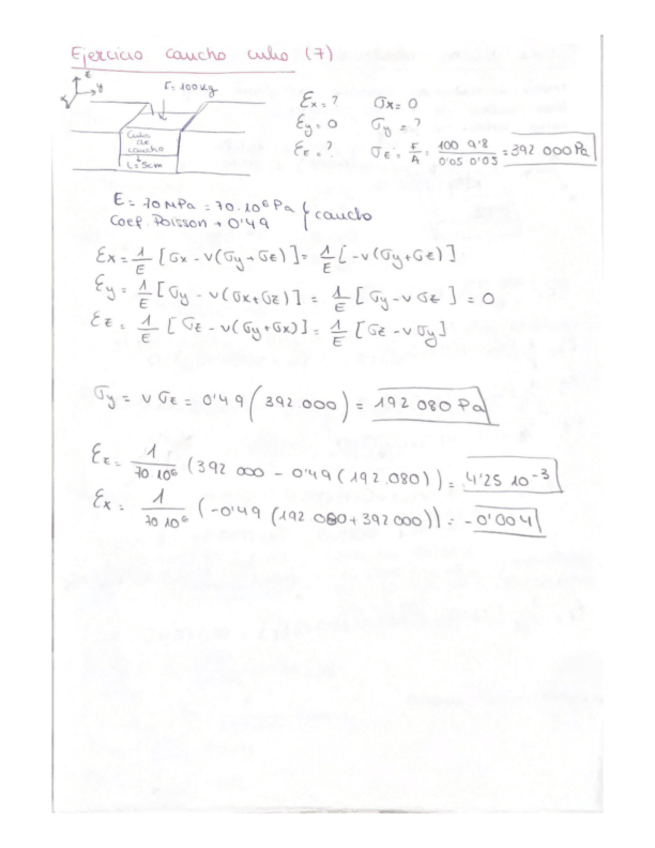 Ejercicio caucho cubo (7)
z
y
x
F=100kg
Cubo
de
caucho
L=5cm
Ɛx=? σx=0
Ɛy=0 σy=?
Ɛz=? σz=F/A=100 9'8/0'05 0'05=392 000Pa
E=70MPa=70·10⁶Pa } caucho
Coef. Poisson → 0'49
Ɛx=1/E[σx-ν(σy+σz)]=1/E[-ν(σy+σz)]
Ɛy=1/E[σy-ν(σx+σz)]=1/E[σy-νσz]=0
Ɛz=1/E[σz-ν(σy+σx)]=1/E[σz-νσy]
σy=νσz=0'49(392 000)=192 080 Pa
Ɛz=1/70·10⁶(392 000-0'49(192.080))=4'25 10⁻³
Ɛx=1/70 10⁶(-0'49(192.080+392000))=-0'004